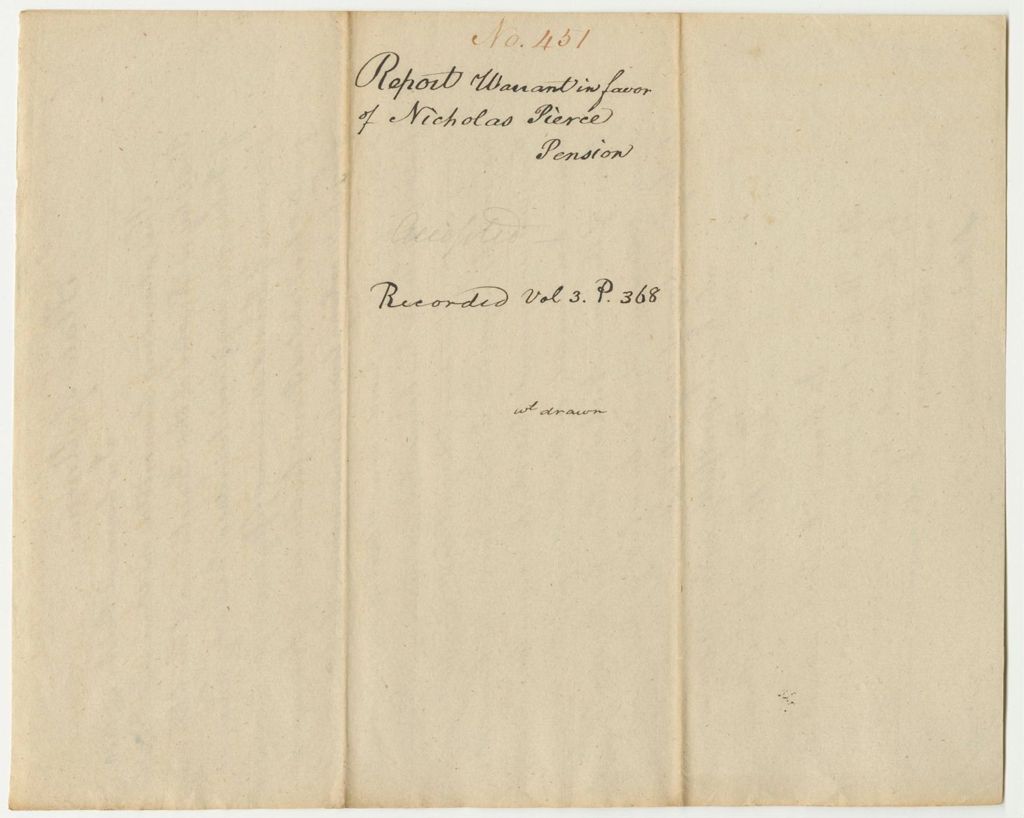 No. 451
Report Warrant in favor
of Nicholas Pierce
Pension
Accepted
Recorded Vol 3. P. 368
wt drawn